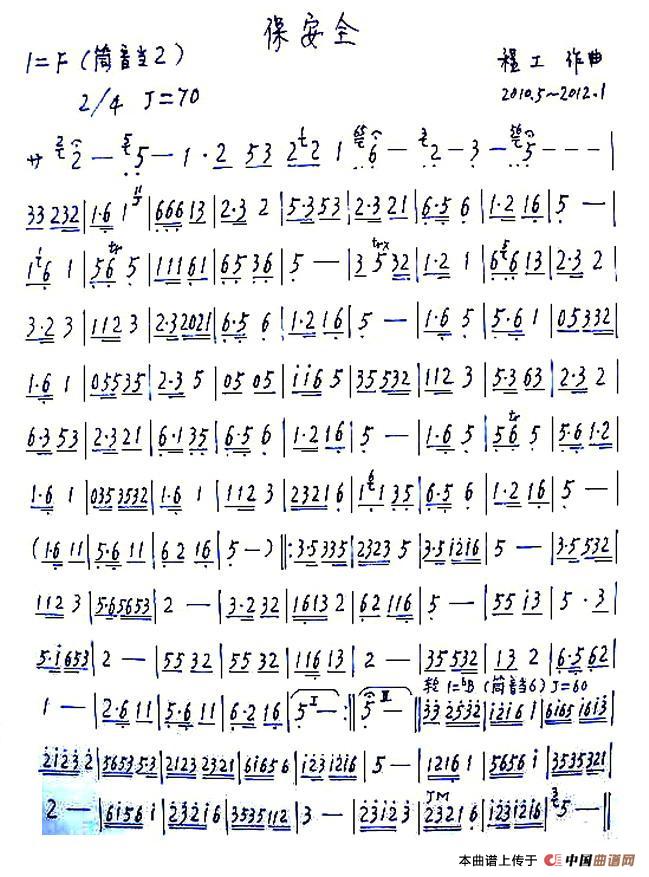 保安全
1=F (筒音当2)
程工 作曲
2/4 ♩=70
2010.5~2012.1
サ 2 — 5 — 1 · 2 53 2 2 1 6 — 2 — 3 — 5 — — — |
33 232 | 1·6 1 | 666 13 | 2·3 2 | 5·3 53 | 2·3 21 | 6·5 6 | 1·2 16 | 5 — |
16 1 | 56 5 | 11161 | 65 36 | 5 — | 3 532 | 1·2 1 | 66 13 | 2·3 2 |
3·2 3 | 112 3 | 2·32021 | 6·5 6 | 1·2 16 | 5 — | 1·6 5 | 5·6 1 | 05332 |
1·6 1 | 05535 | 2·3 5 | 05 05 | i i 6 5 | 35532 | 112 3 | 5·3 63 | 2·3 2 |
6·3 53 | 2·3 21 | 6·1 35 | 6·5 6 | 1·2 16 | 5 — | 1·6 5 | 56 5 | 5·6 1·2 |
1·6 1 | 035 3532 | 1·6 1 | 112 3 | 2321 6 | 1 1 35 | 6·5 6 | 1·2 16 | 5 — |
(1·6 11 | 5·6 11 | 6 2 16 | 5 —) ‖: 3·5335 | 2323 5 | 3·5 i2i6 | 5 — | 3·5 532 |
112 3 | 5·65653 | 2 — | 3·2 32 | 1613 2 | 62 116 | 5 — | 55 i3 | 5 · 3 |
5·i653 | 2 — | 55 32 | 55 32 | 116 13 | 2 — | 35532 | 13 2 | 6·5 62 |
轮 1=♭B (筒音当6) ♩=60
1 — | 2·6 11 | 5·6 11 | 6·2 16 | I 5 — :‖ II 5 — ‖ 33 2532 | i2i6 1 | 6165 1613 |
2i23 2 | 5653 53 | 2123 2321 | 6165 6 | i23 i2i6 | 5 — | 1216 1 | 5656 i | 3535321 |
2 — | 6156 1 | 232i6 | 3535112 | 3 — | 23i23 | 2321 6 | i23i2i6 | 5 — — ‖
本曲谱上传于 中国曲谱网